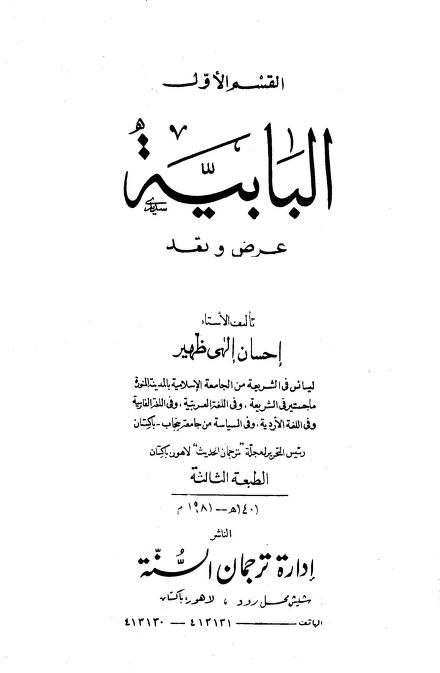 القسم الأول
البابية
عرض ونقد
تأليف الأستاذ
إحسان إلهى ظهير
ليسانس فى الشريعة من الجامعة الإسلامية بالمدينة المنورة
ماجستير فى الشريعة ، وفى اللغة العربية ، وفى اللغة الفارسية
وفى اللغة الأردية ، وفى السياسة من جامعة پنجاب - پاكستان
رئيس التحرير لمجلة "ترجمان الحديث" لاهور پاكستان
الطبعة الثالثة
١٤٠١ھ — ١٩٨١ م
الناشر
إدارة ترجمان السُّنّة
شيش محل رود ، لاهور پاكستان
الهاتف — ٤١٣١٣١ — ٤١٣١٣٠